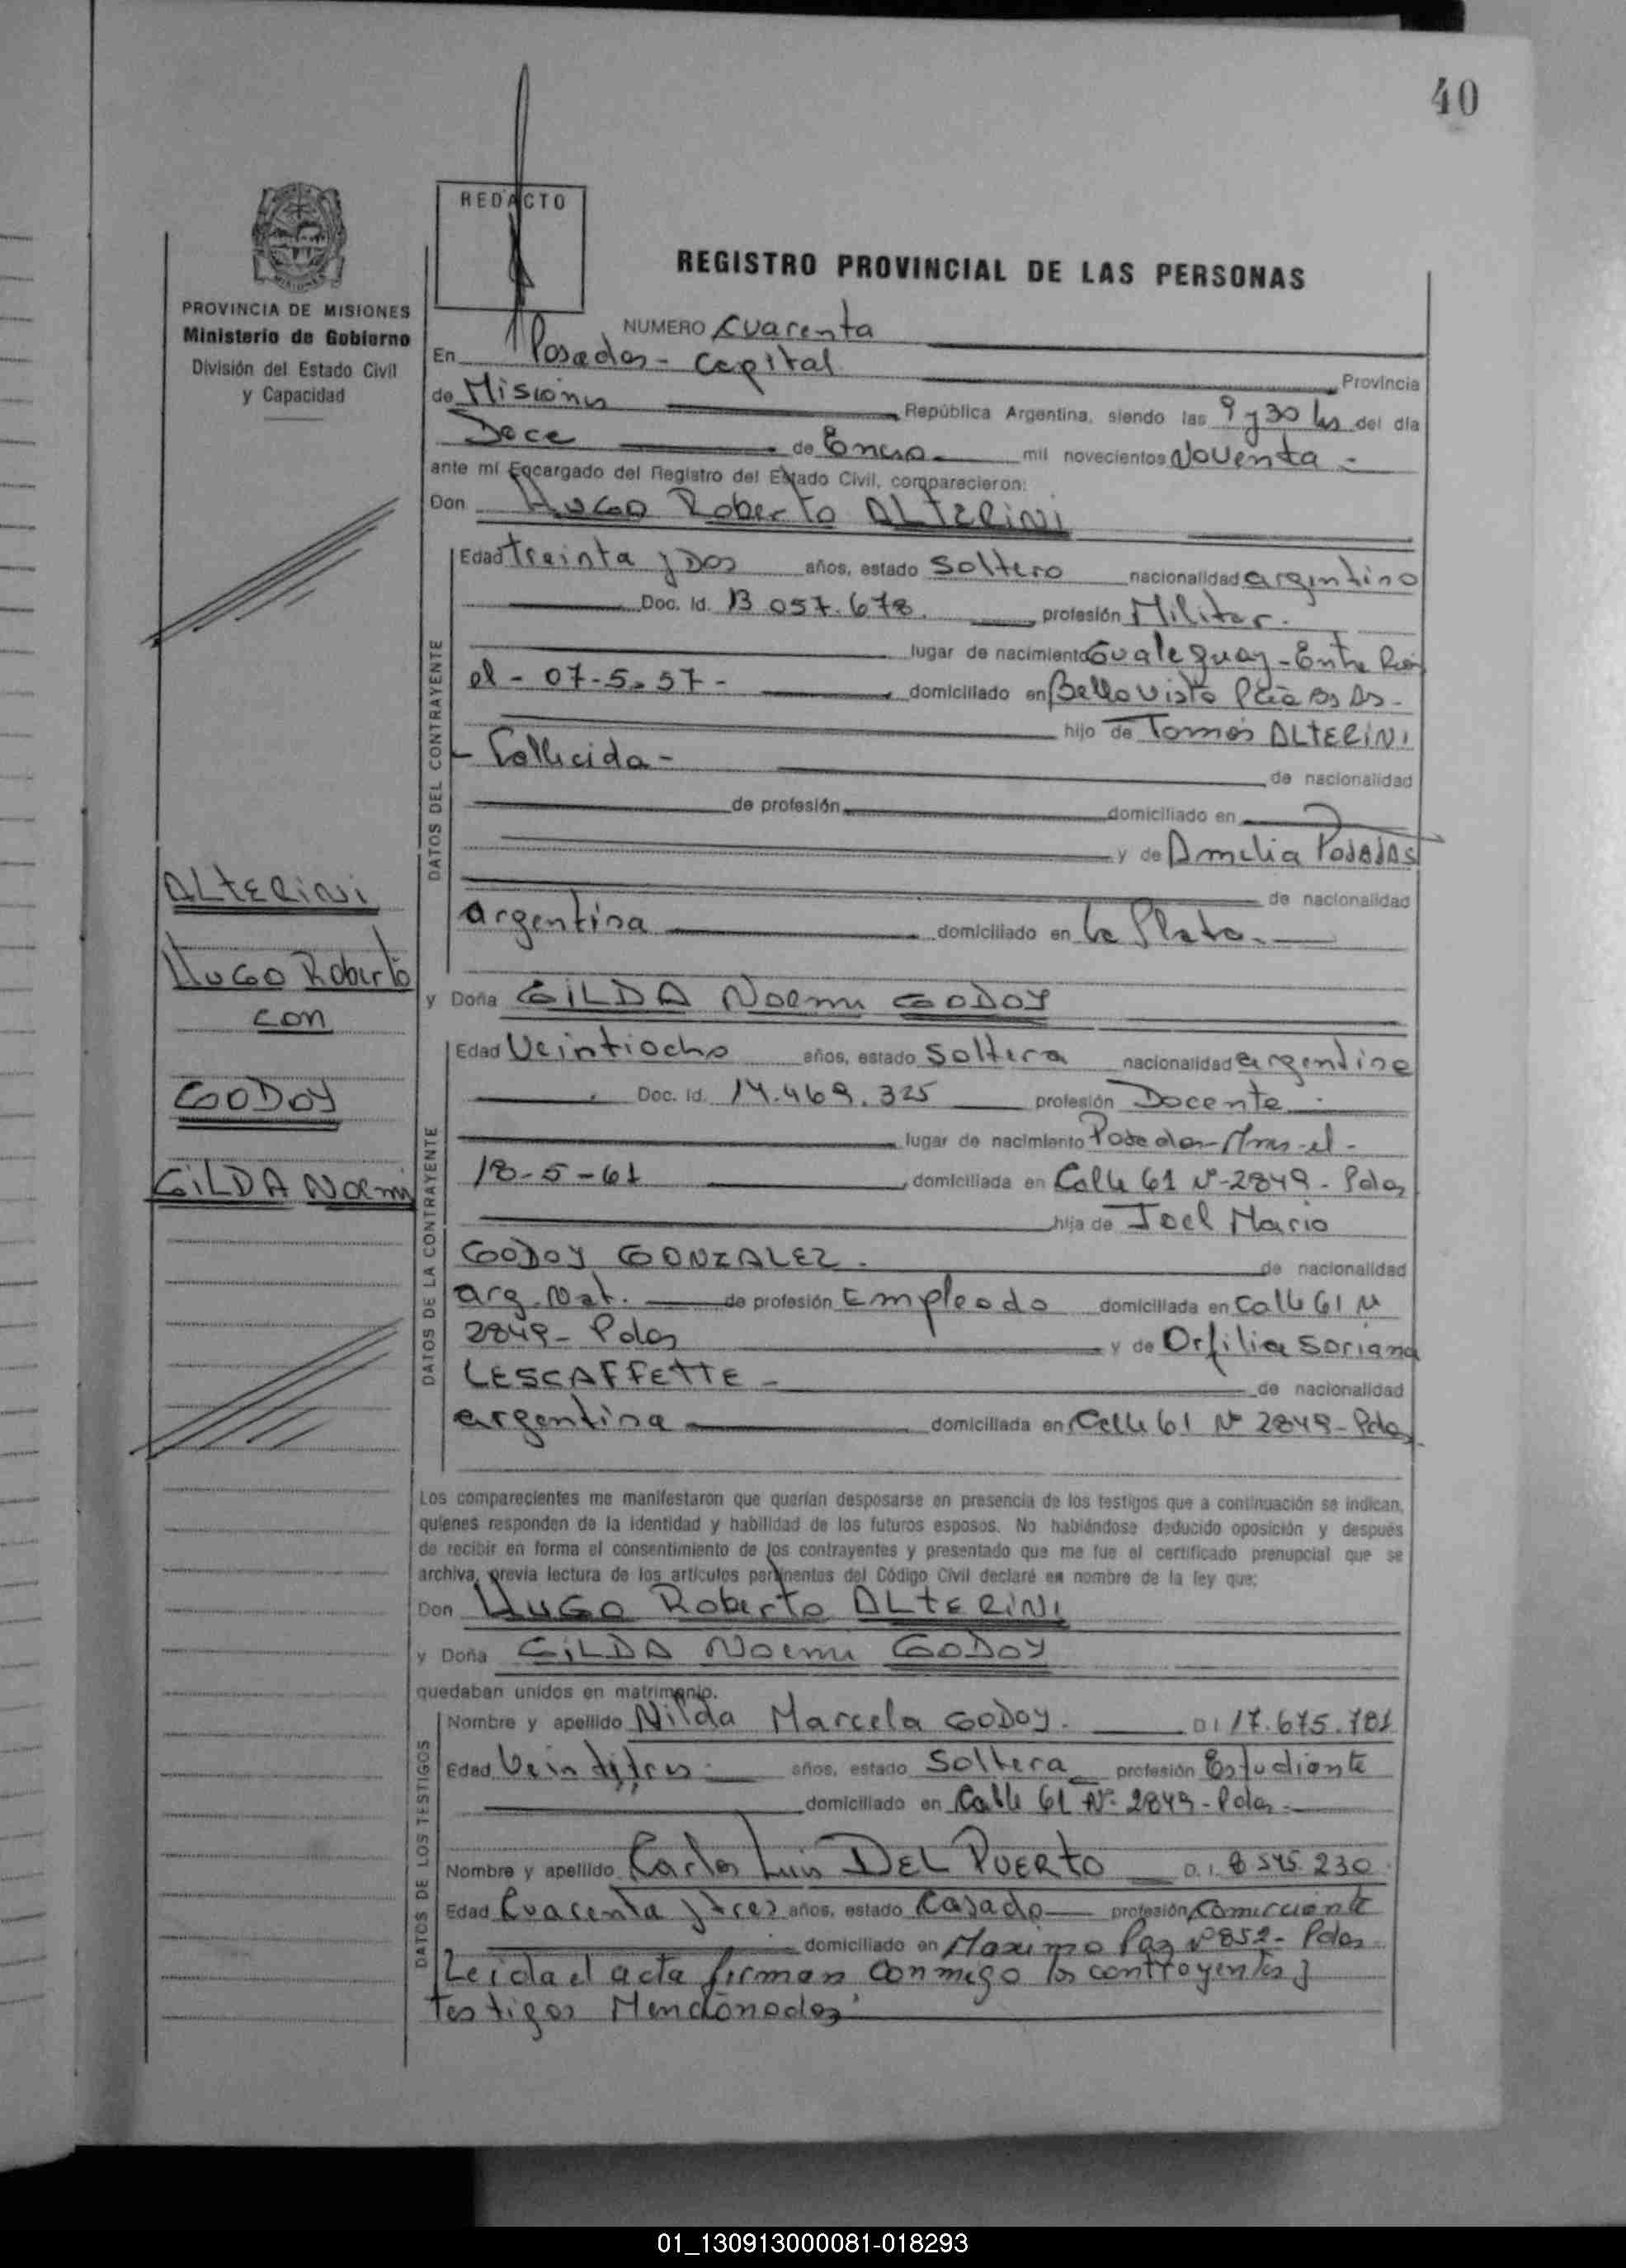 40
REDACTO
REGISTRO PROVINCIAL DE LAS PERSONAS
PROVINCIA DE MISIONES
Ministerio de Gobierno
División del Estado Civil
y Capacidad
NUMERO Cuarenta
En Posadas - Capital Provincia
de Misiones República Argentina, siendo las 9 y 30 hs del día
Doce de Enero mil novecientos Noventa -
ante mí Encargado del Registro del Estado Civil, comparecieron:
Don HUGO Roberto ALTERINI
DATOS DEL CONTRAYENTE
Edad treinta y Dos años, estado Soltero nacionalidad argentino
Doc. Id. 13 057.678. profesión Militar.
lugar de nacimiento Gualeguay - Entre Rios
el - 07-5-57 - domiciliado en Bella Vista Pcia Bs As -
hijo de Tomás ALTERINI
- Fallecida - de nacionalidad
de profesión domiciliado en
y de Amelia
de nacionalidad
argentina domiciliado en La Plata.
ALTERINI
HUGO Roberto
con
GODOY
GILDA Noemi
y Doña GILDA Noemi GODOY
DATOS DE LA CONTRAYENTE
Edad Veintiocho años, estado Soltera nacionalidad argentina
Doc. Id. 14.469.325 profesión Docente.
lugar de nacimiento Posadas - Mnes - el -
18-5-61 domiciliada en Calle 61 Nº 2849 - Pdas
hija de Joel Mario
GODOY GONZALEZ. de nacionalidad
arg. Nat. de profesión Empleado domiciliada en Calle 61 N
2849 - Pdas y de Orfilia Soriana
LESCAFFETTE - de nacionalidad
argentina domiciliada en Calle 61 Nº 2849 - Pdas
Los comparecientes me manifestaron que querían desposarse en presencia de los testigos que a continuación se indican,
quienes responden de la identidad y habilidad de los futuros esposos. No habiéndose deducido oposición y después
de recibir en forma el consentimiento de los contrayentes y presentado que me fue el certificado prenupcial que se
archiva, previa lectura de los artículos pertinentes del Código Civil declaré en nombre de la ley que:
Don HUGO Roberto ALTERINI
y Doña GILDA Noemi GODOY
quedaban unidos en matrimonio.
DATOS DE LOS TESTIGOS
Nombre y apellido Nilda Marcela GODOY. D I 17.675.781
Edad Veintitres años, estado Soltera profesión Estudiante
domiciliado en Calle 61 Nº 2849 - Pdas -
Nombre y apellido Carlos Luis DEL PUERTO D. I. 8 545 230
Edad Cuarenta y tres años, estado Casado profesión Comerciante
domiciliado en Maximo Paz Nº 852 - Pdas
Leida el acta firman conmigo los contrayentes y
testigos Mencionados
01_130913000081-018293